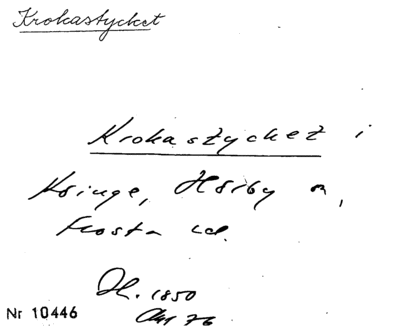 Krokastycket
Krokastycket i
Ksinge, Hörby sn,
Frosta hd.
Dh. 1850
Akt 76
Nr 10446